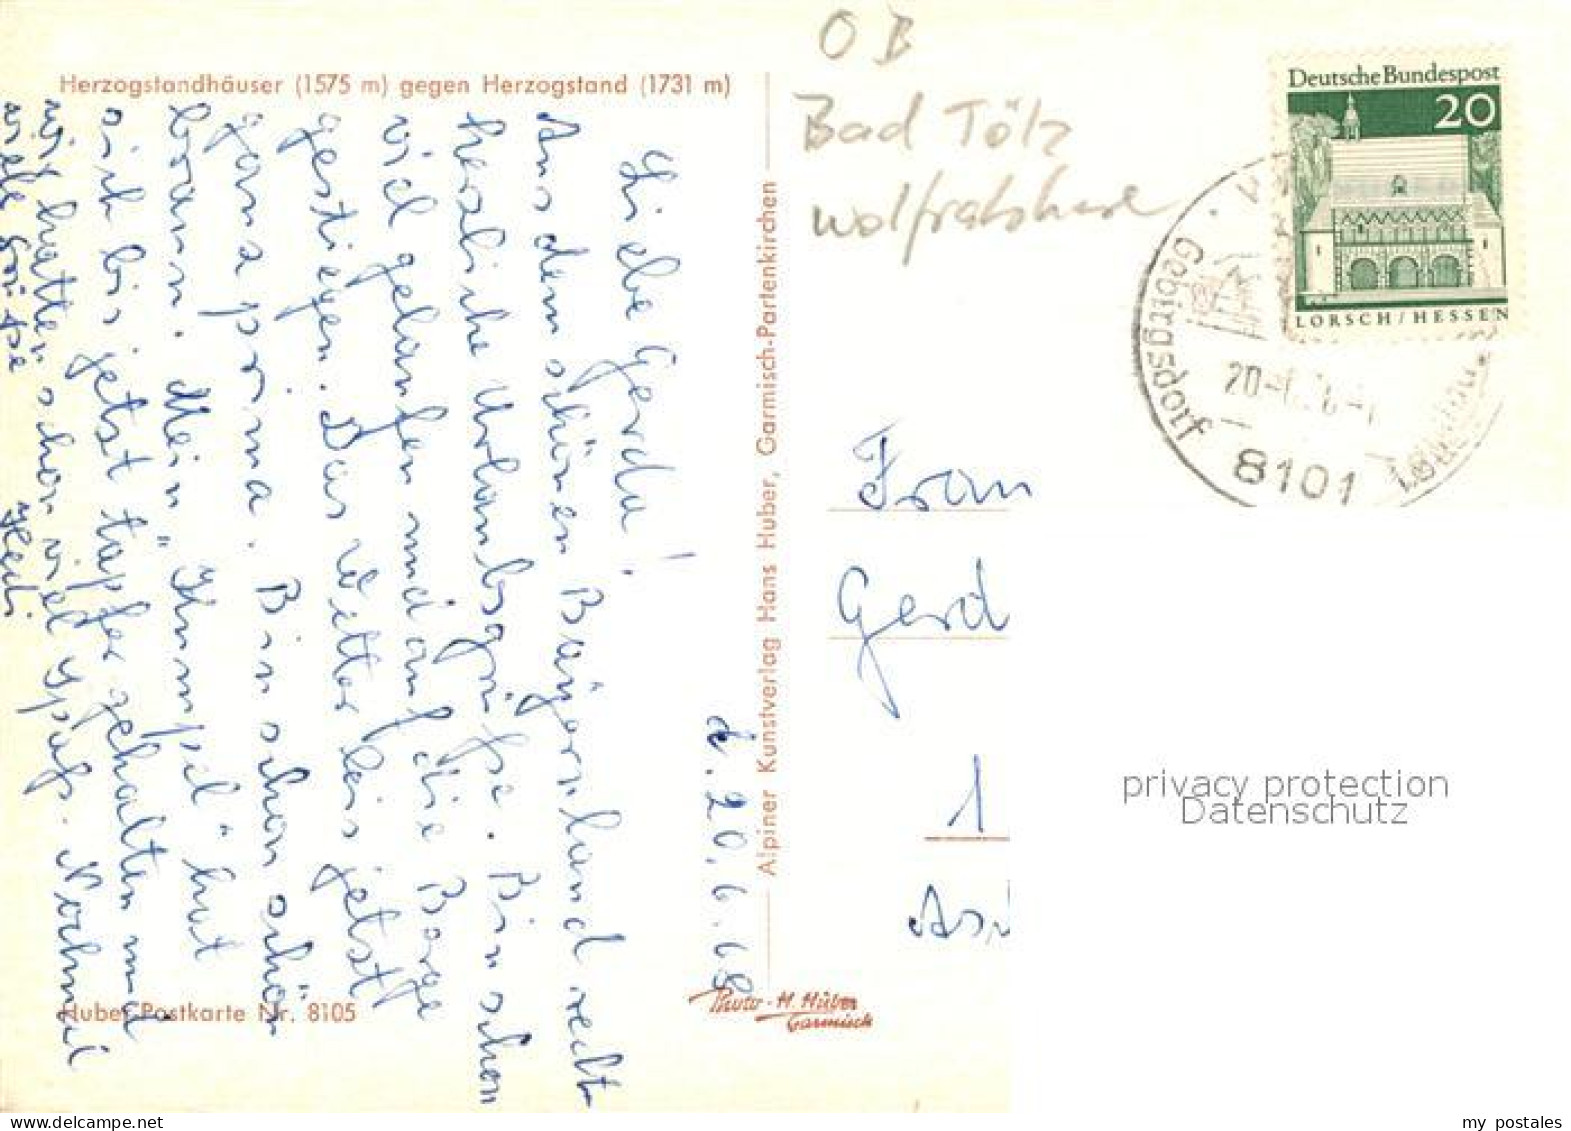 Herzogstandhäuser (1575 m) gegen Herzogstand (1731 m)
d. 20.6.68
Liebe Gerda!
Aus dem schönen Bayernland recht
herzliche Urlaubsgrüße. Bin schon
viel gelaufen und auf die Berge
gestiegen. Das Wetter bis jetzt
ganz prima. Bin schon schön
braun. Mein "Kumpel" hat
sich bis jetzt tapfer gehalten und
wir hatten schon viel Spaß. Nochmal
viele Grüße Hedi
Huber-Postkarte Nr. 8105
Alpiner Kunstverlag Hans Huber, Garmisch-Partenkirchen
Photo-H. Huber
Garmisch
OB
Bad Tölz
Deutsche Bundespost
20
LORSCH/HESSEN
Gebirgsdorf
8101
Frau
Gerd
1
privacy protection
Datenschutz
www.delcampe.net
my_postales